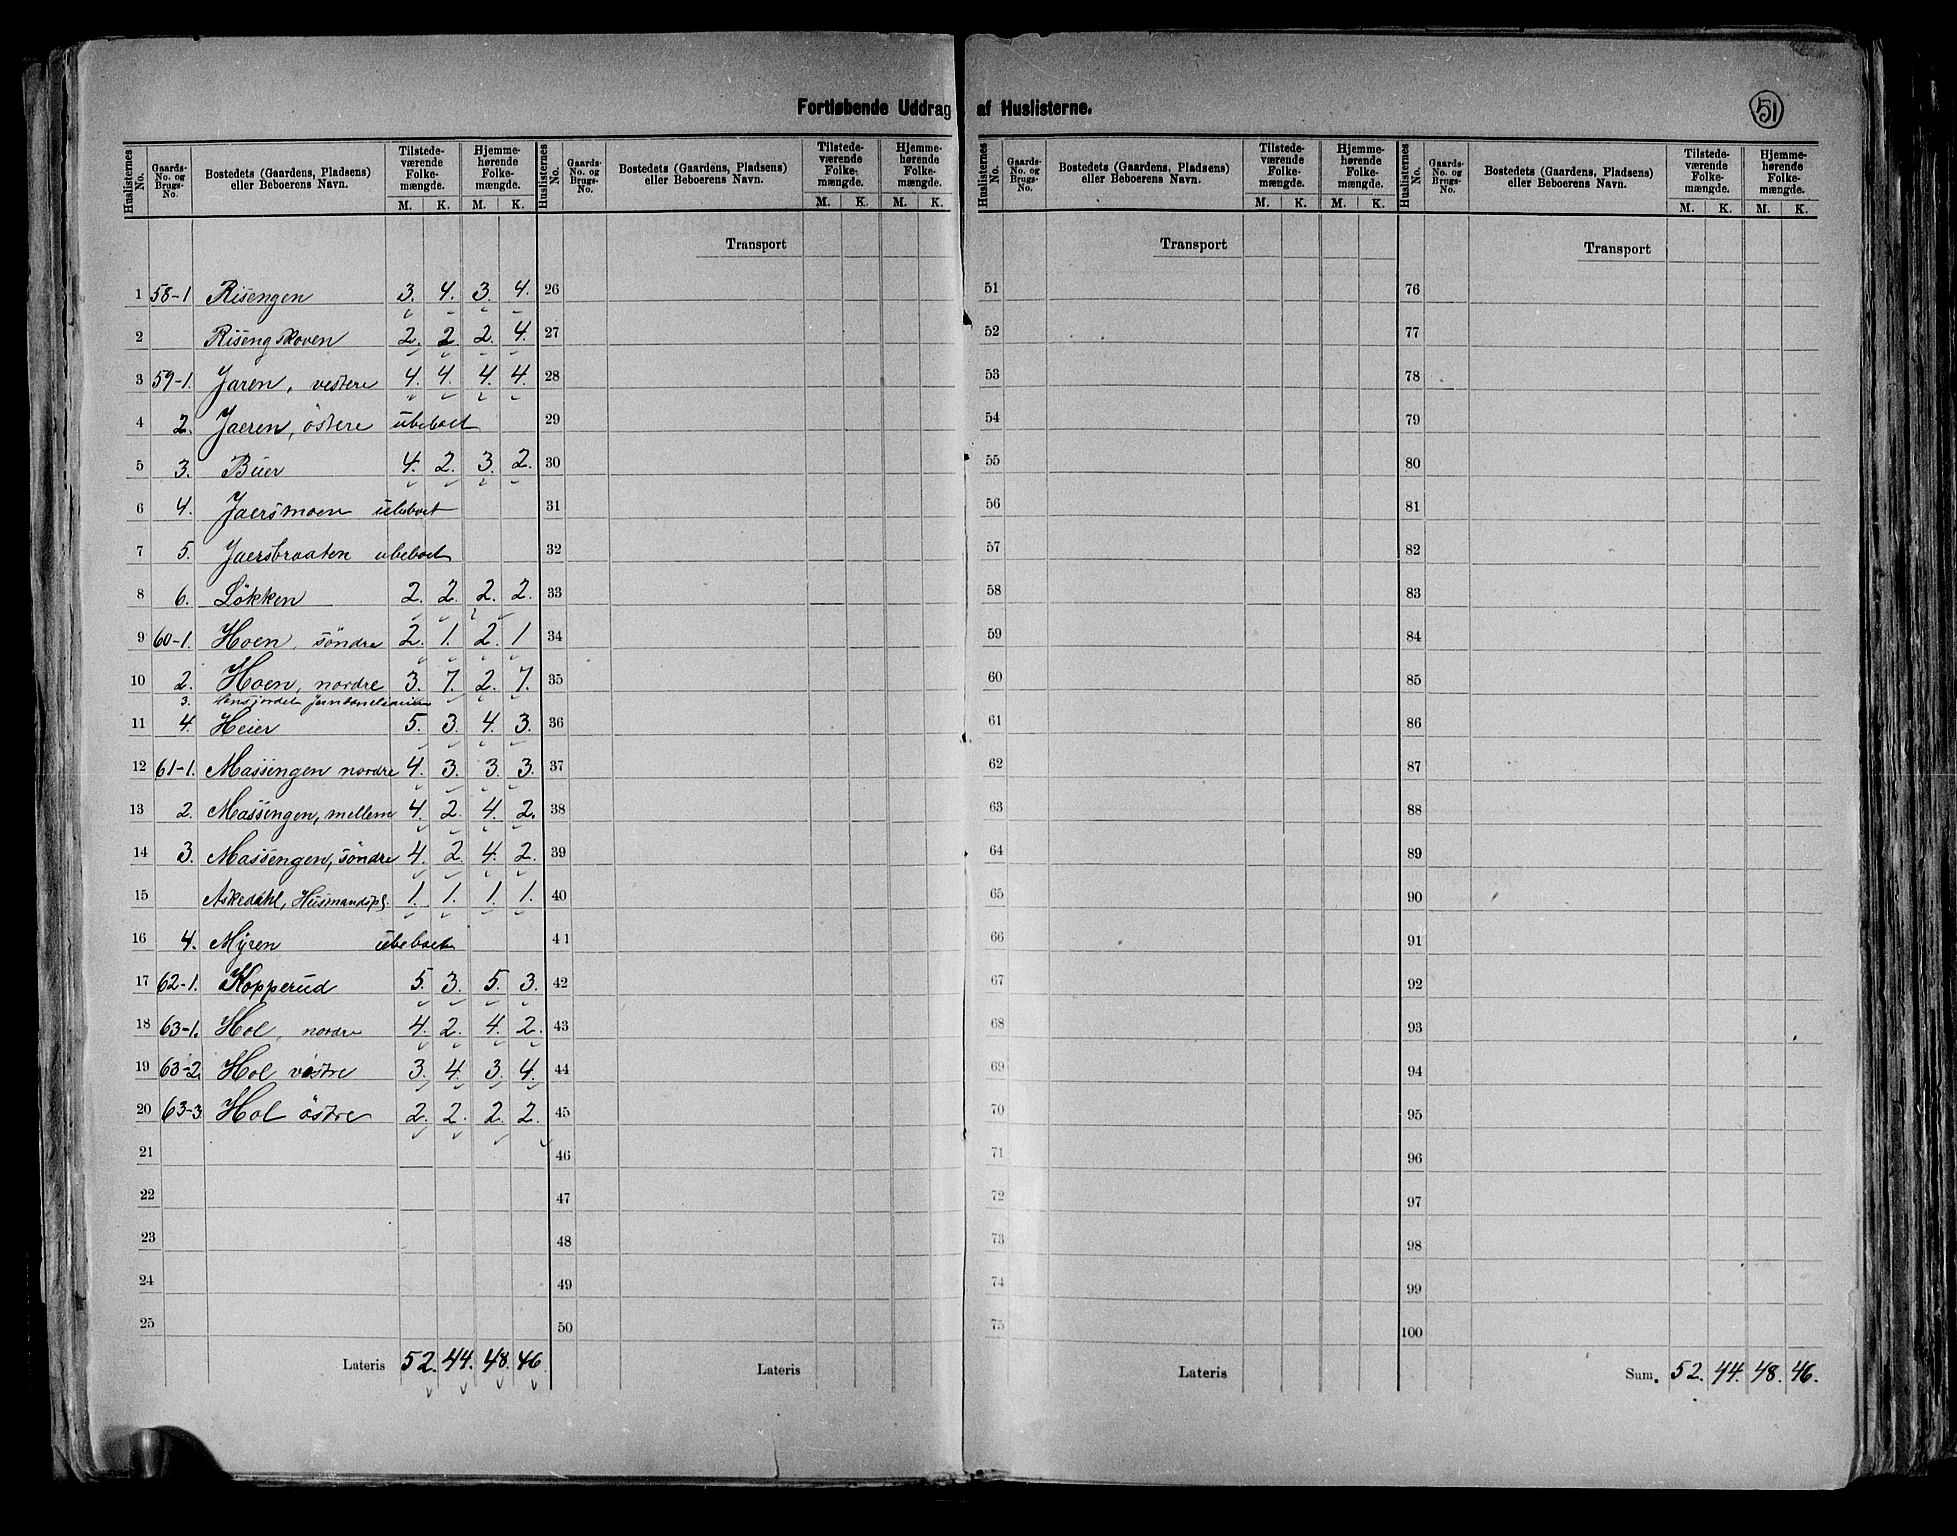 Fortløbende Uddrag af Huslisterne.
51
Huslisternes No. Gaards-No. og Brugs-No. Bostedets (Gaardens, Pladsens) eller Beboerens Navn. Tilstede-værende Folke-mængde. M. K. Hjemme-hørende Folke-mængde. M. K.
Huslisternes No. Gaards-No. og Brugs-No. Bostedets (Gaardens, Pladsens) eller Beboerens Navn. Tilstede-værende Folke-mængde. M. K. Hjemme-hørende Folke-mængde. M. K.
Huslisternes No. Gaards-No. og Brugs-No. Bostedets (Gaardens, Pladsens) eller Beboerens Navn. Tilstede-værende Folke-mængde. M. K. Hjemme-hørende Folke-mængde. M. K.
Huslisternes No. Gaards-No. og Brugs-No. Bostedets (Gaardens, Pladsens) eller Beboerens Navn. Tilstede-værende Folke-mængde. M. K. Hjemme-hørende Folke-mængde. M. K.
Transport Transport Transport
1 58-1 Risengen 3. 4. 3. 4. 26 51 76
2 Risengskoven 2. 2 2. 4. 27 52 77
3 59-1. Jaren, vestere 4. 4. 4. 4. 28 53 78
4 2. Jaeren, östere ubeboet 29 54 79
5 3. Buer 4. 2. 3. 2. 30 55 80
6 4. Jaersmoen ubeboet 31 56 81
7 5. Jaersbraaten ubeboet 32 57 82
8 6. Lökken 2. 2. 2. 2. 33 58 83
9 60-1. Hoen, söndre 2. 1. 2. 1 34 59 84
10 2. Hoen, nordre 3. 7. 2. 7. 35 60 85
3.
11 4. Heier 5. 3. 4. 3. 36 61 86
12 61-1. Massengen nordre 4. 3. 3. 3. 37 62 87
13 2. Massengen, mellem 4. 2. 4. 2. 38 63 88
14 3. Massengen, söndre 4. 2 4. 2. 39 64 89
15 Askedahl, Husmandspl. 1. 1. 1. 1. 40 65 90
16 4. Myren ubeboet 41 66 91
17 62-1. Kopperud 5. 3. 5. 3. 42 67 92
18 63-1. Hol, nordre 4. 2. 4. 2. 43 68 93
19 63-2. Hol vestre 3. 4. 3. 4. 44 69 94
20 63-3. Hol östre 2. 2. 2. 2. 45 70 95
21 46 71 96
22 47 72 97
23 48 73 98
24 49 74 99
25 50 75 100
Lateris 52. 44. 48. 46. Lateris Lateris Sum. 52. 44. 48. 46.